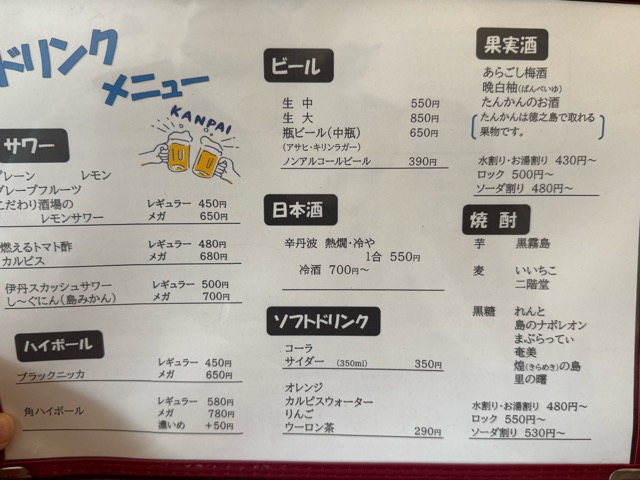 ドリンク
メニュー
KANPAI
サワー
プレーン レモン
グレープフルーツ
こだわり酒場の レギュラー 450円
レモンサワー メガ 650円
燃えるトマト酢 レギュラー 480円
カルピス メガ 680円
伊丹スカッシュサワー レギュラー 500円
し～ぐにん(島みかん) メガ 700円
ハイボール
レギュラー 450円
ブラックニッカ メガ 650円
レギュラー 580円
角ハイボール メガ 780円
濃いめ +50円
ビール
生 中 550円
生 大 850円
瓶ビール(中瓶) 650円
(アサヒ・キリンラガー)
ノンアルコールビール 390円
日本酒
辛丹波 熱燗・冷や
1合 550円
冷酒 700円～
ソフトドリンク
コーラ
サイダー (350ml) 350円
オレンジ
カルピスウォーター
りんご
ウーロン茶 290円
果実酒
あらごし梅酒
晩白柚(ばんぺいゆ)
たんかんのお酒
たんかんは徳之島で取れる
果物です。
水割り・お湯割り 430円～
ロック 500円～
ソーダ割り 480円～
焼酎
芋 黒霧島
麦 いいちこ
二階堂
黒糖 れんと
島のナポレオン
まぶらってぃ
奄美
煌(きらめき)の島
里の曙
水割り・お湯割り 480円～
ロック 550円～
ソーダ割り 530円～